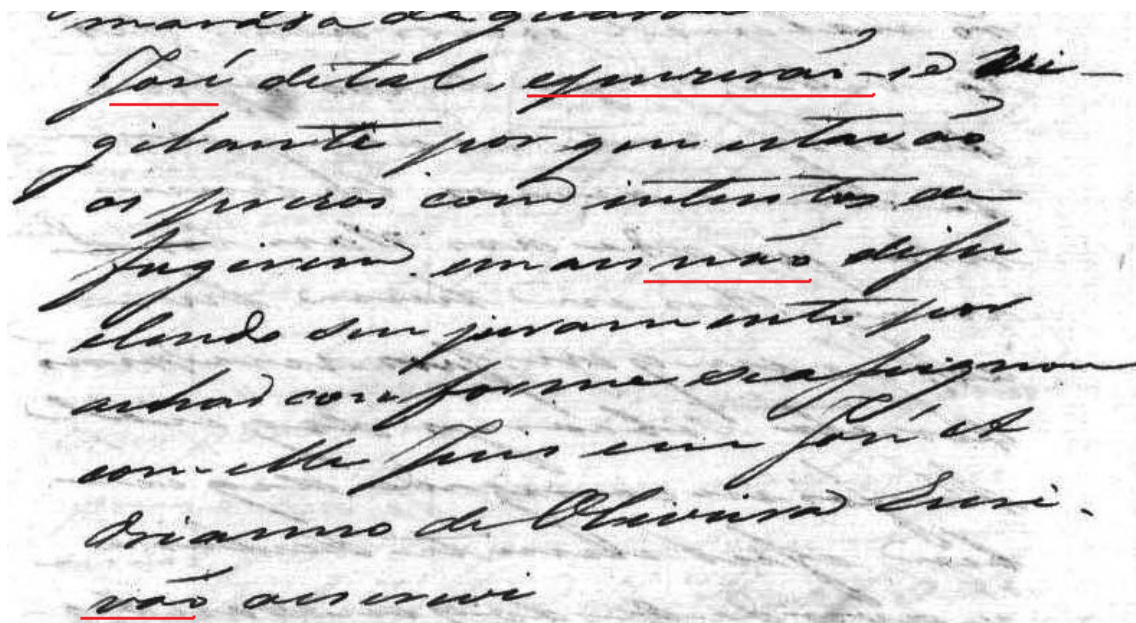 de guarda
José de tal, e puserão-se vi-
gilante por que estavão
os presos com intentos de
fugirem e mais não disse
e lendo seu juramento por
achar conforme se assignou
com elle Juis eu José A
drianno de Oliveira Escri-
vão o escrevi